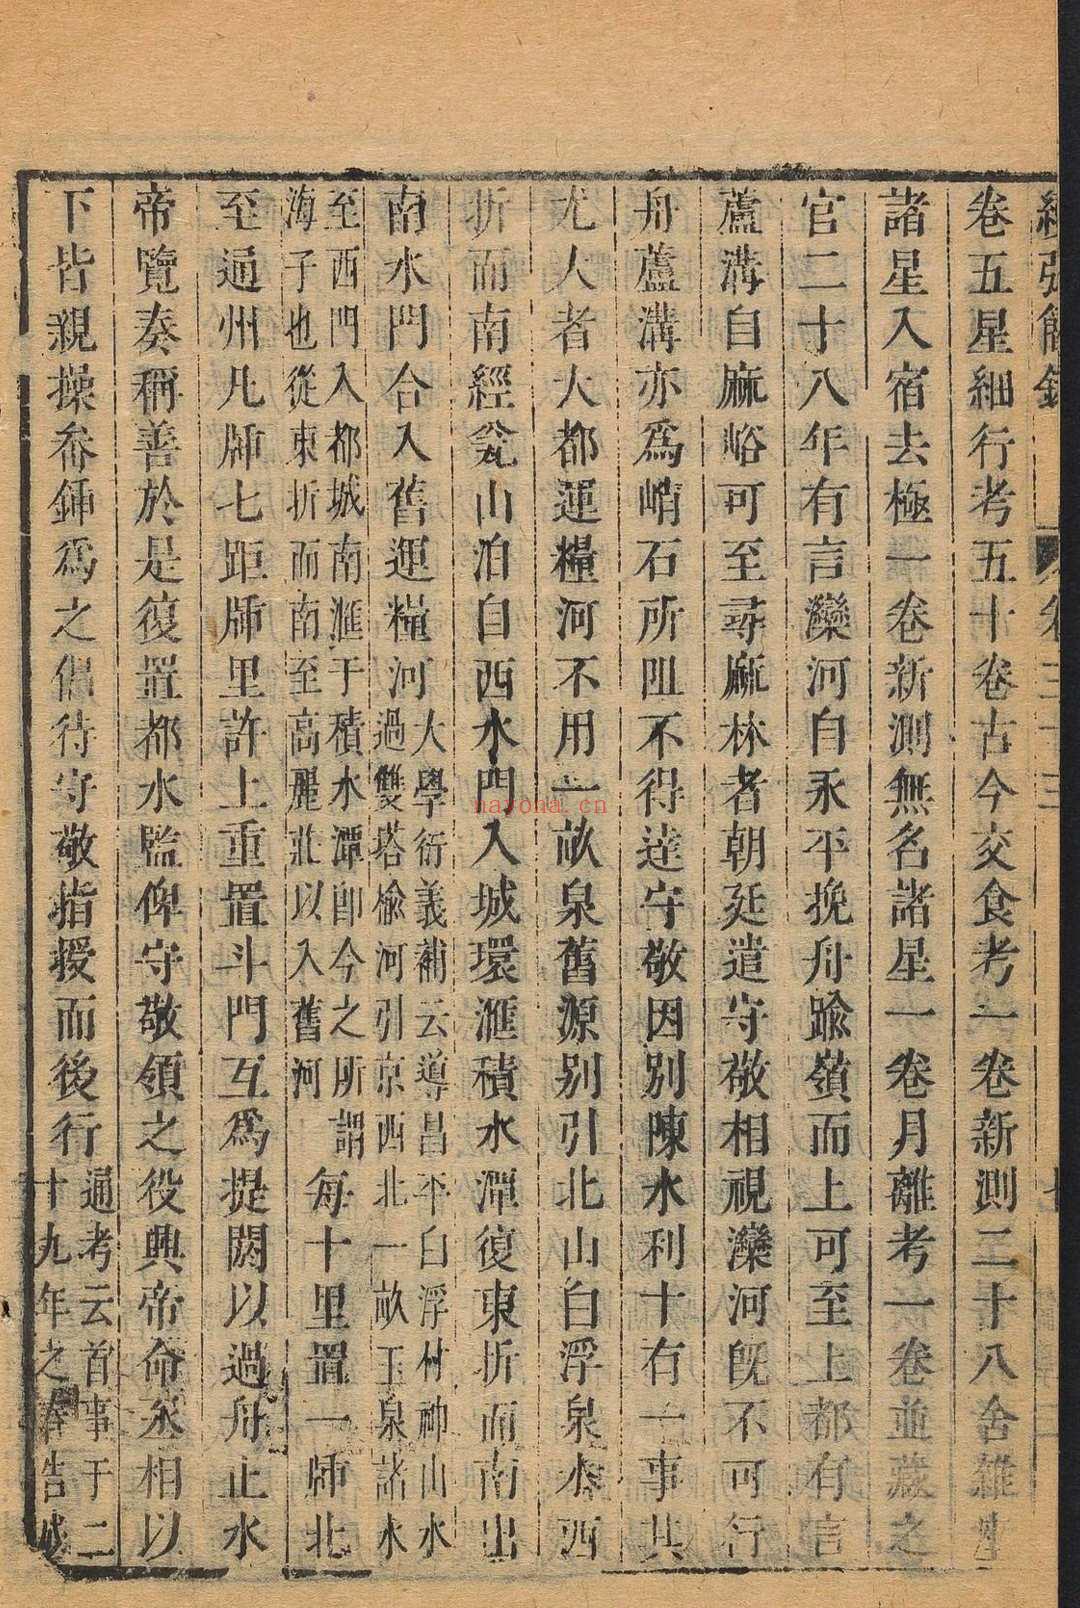 弘簡錄 卷三十三 七
卷五星細行考五十卷古今交食考一卷新測二十八舍雜座
諸星入宿去極一卷新測無名諸星一卷月離考一卷並藏之
官二十八年有言灤河自永平挽舟踰嶺而上可至上都有言
蘆溝自麻峪可至尋麻林者朝廷遣守敬相視灤河旣不可行
舟蘆溝亦爲峭石所阻不得達守敬因別陳水利十有一事其
尤大者大都運糧河不用一畝泉舊源別引北山白浮泉水西
折而南經瓮山泊自西水門入城環滙積水潭復東折而南出
南水門合入舊運糧河大學衍義補云導昌平白浮村神山水
過雙塔榆河引京西北一畝玉泉諸水
至西門入都城南滙于積水潭即今之所謂
海子也從東折而南至高麗莊以入舊河
每十里置一牐北
至通州凡牐七距牐里許上重置斗門互爲提閼以過舟止水
帝覽奏稱善於是復置都水監俾守敬領之役興帝命丞相以
下皆親操畚鍤爲之倡待守敬指授而後行通考云首事于二
十九年之春告成
nayona.cn